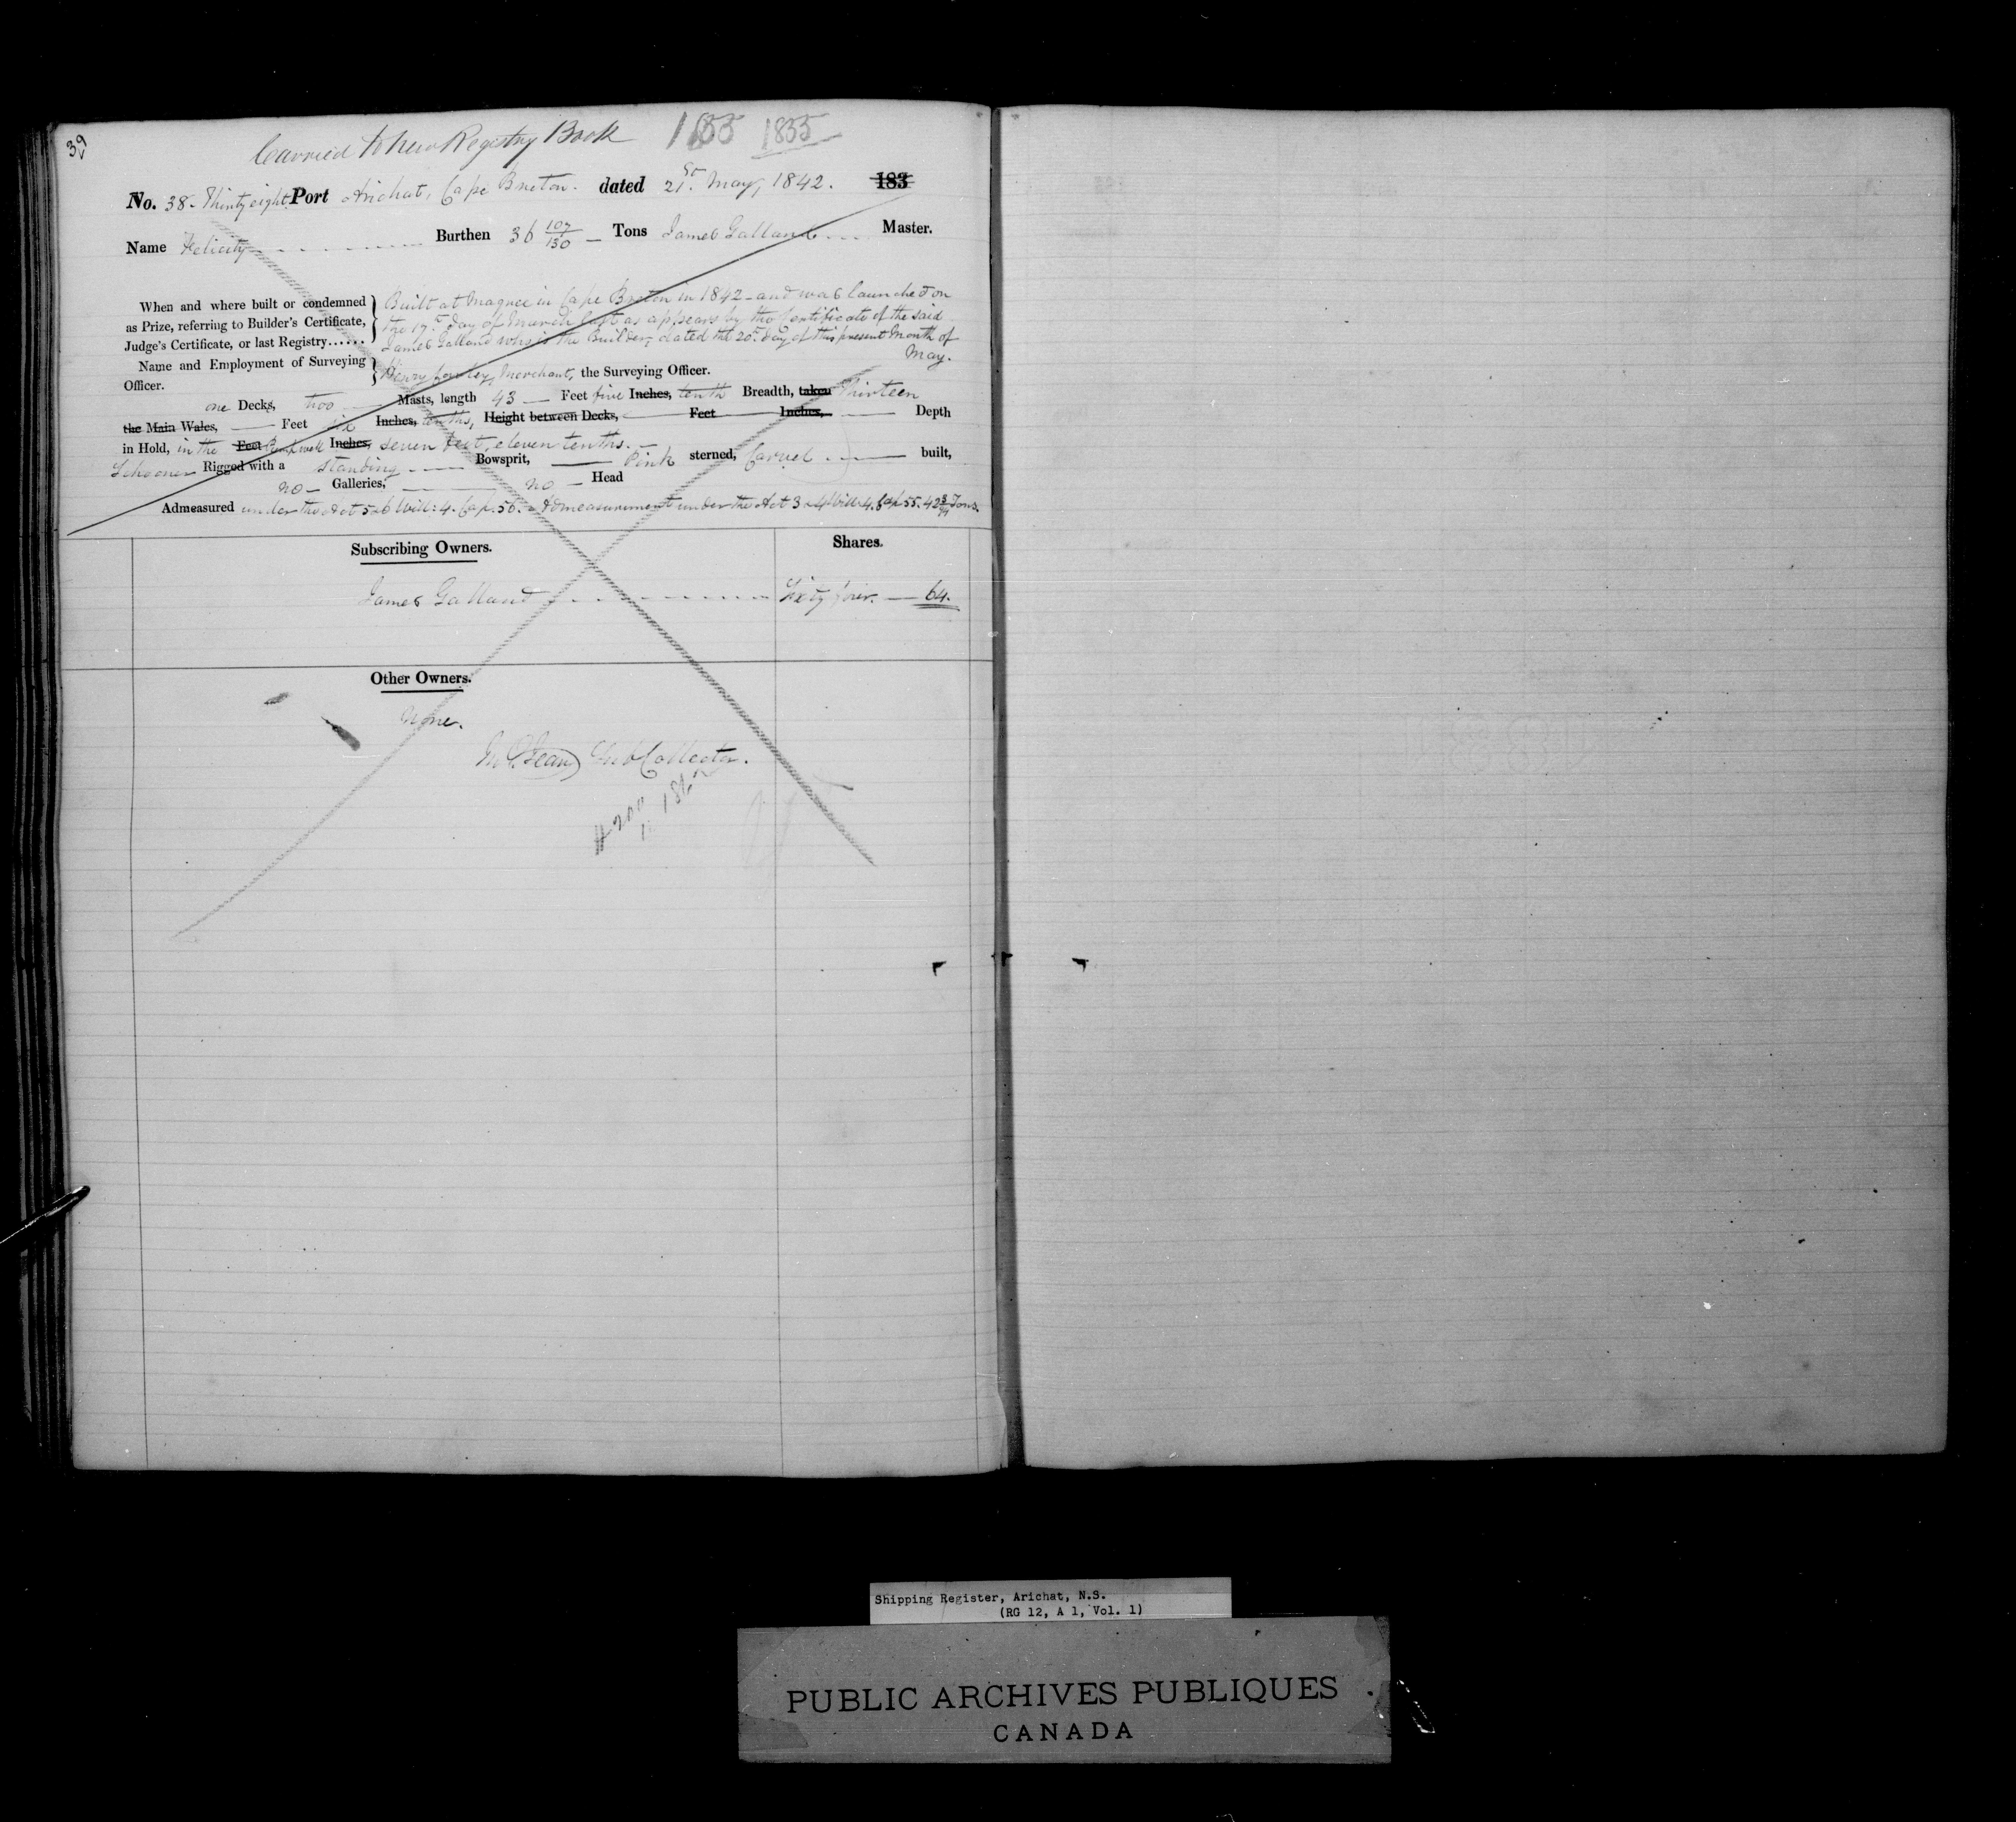 39
Carried to new Registry Book 1835 1835
No. 38. Thirty eight. Port Arichat, Cape Breton. dated 21st. May, 1842. 183
Name Felicity Burthen 36 107/130 Tons James Galland Master.
When and where built or condemned as Prize, referring to Builder's Certificate, Judge's Certificate, or last Registry......
Built at Magree in Cape Breton in 1842 - and was launched on
the 17th. day of March last as appears by the Certificate of the said
James Galland who is the Builder, dated the 20th. day of this present Month of
May.
Name and Employment of Surveying Officer.
Henry Merchant, the Surveying Officer.
one Decks, two Masts, length 43 Feet five Inches, tenth Breadth, taken Thirteen
the Main Wales, Feet six Inches, tenths, Height between Decks, Feet Inches, Depth
in Hold, in the Feet Pumpwell Inches, seven feet, eleven tenths.
Schooner Rigged with a standing Bowsprit, Pink sterned, Carvel built,
no Galleries, no Head
Admeasured under the Act 5 & 6 Will: 4. Cap. 56. - Admeasurement under the Act 3 & 4 Will. 4. Cap 55. 42 3/94 Tons.
Subscribing Owners. Shares.
James Galland Sixty four. 64.
Other Owners.
None.
Sub Collector.
Shipping Register, Arichat, N.S.
(RG 12, A 1, Vol. 1)
PUBLIC ARCHIVES PUBLIQUES
CANADA